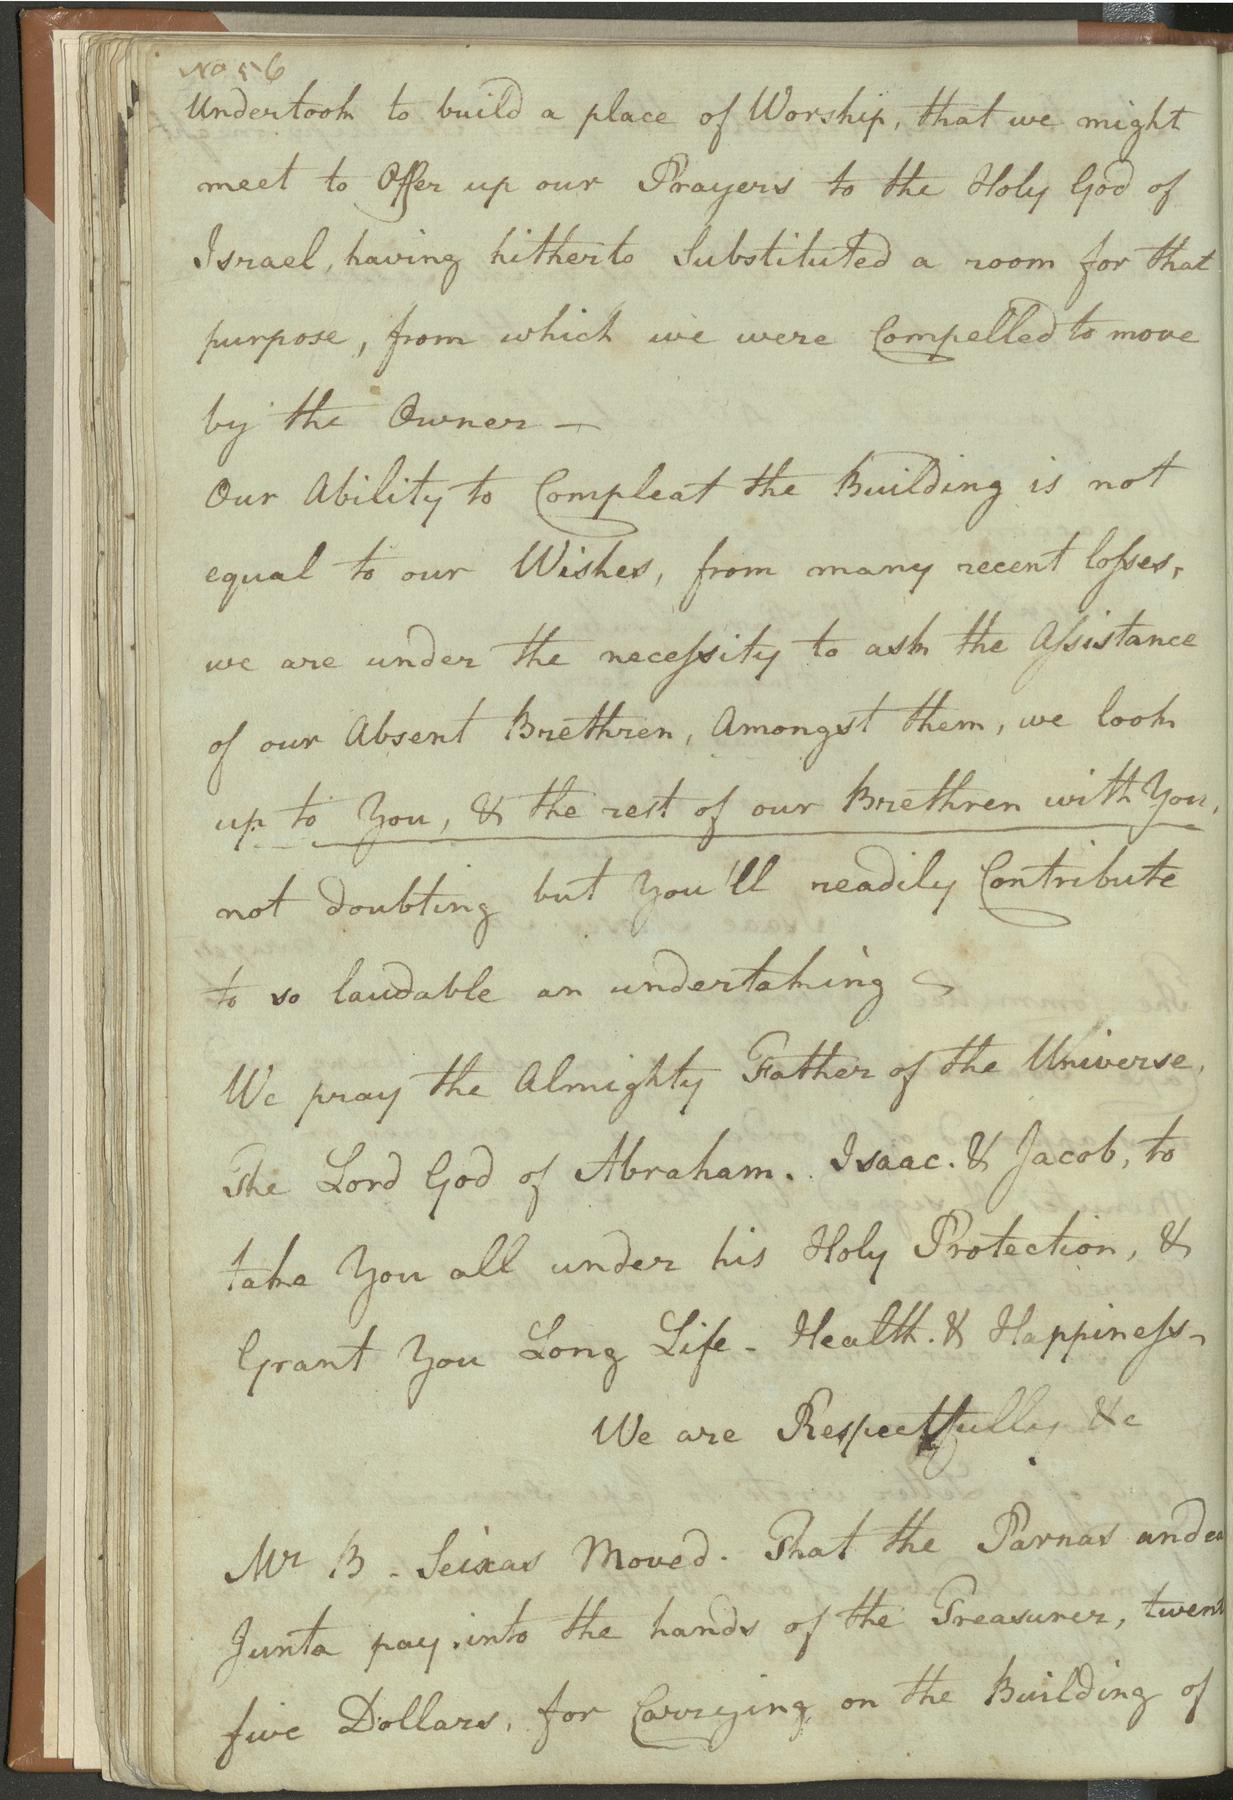 No 56
Undertook to build a place of Worship, that we might
meet to Offer up our Prayers to the Holy God of
Israel, having hitherto Substituted a room for that
purpose, from which we were Compelled to move
by the Owner —
Our Ability to Compleat the Building is not
equal to our Wishes, from many recent losses,
we are under the necessity to ask the Assistance
of our Absent Brethren, Amongst them, we look
up to You, & the rest of our Brethren with You,
not doubting but You'll readily Contribute
to so laudable an undertaking
We pray the Almighty Father of the Universe,
The Lord God of Abraham. Isaac. & Jacob, to
take You all under his Holy Protection, &
Grant You Long Life - Health. & Happiness -
We are Respectfully &c
Mr B - Seixas Moved. That the Parnas and
Junta pay into the hands of the Treasurer, twent
five Dollars, for Carrying on the Building of